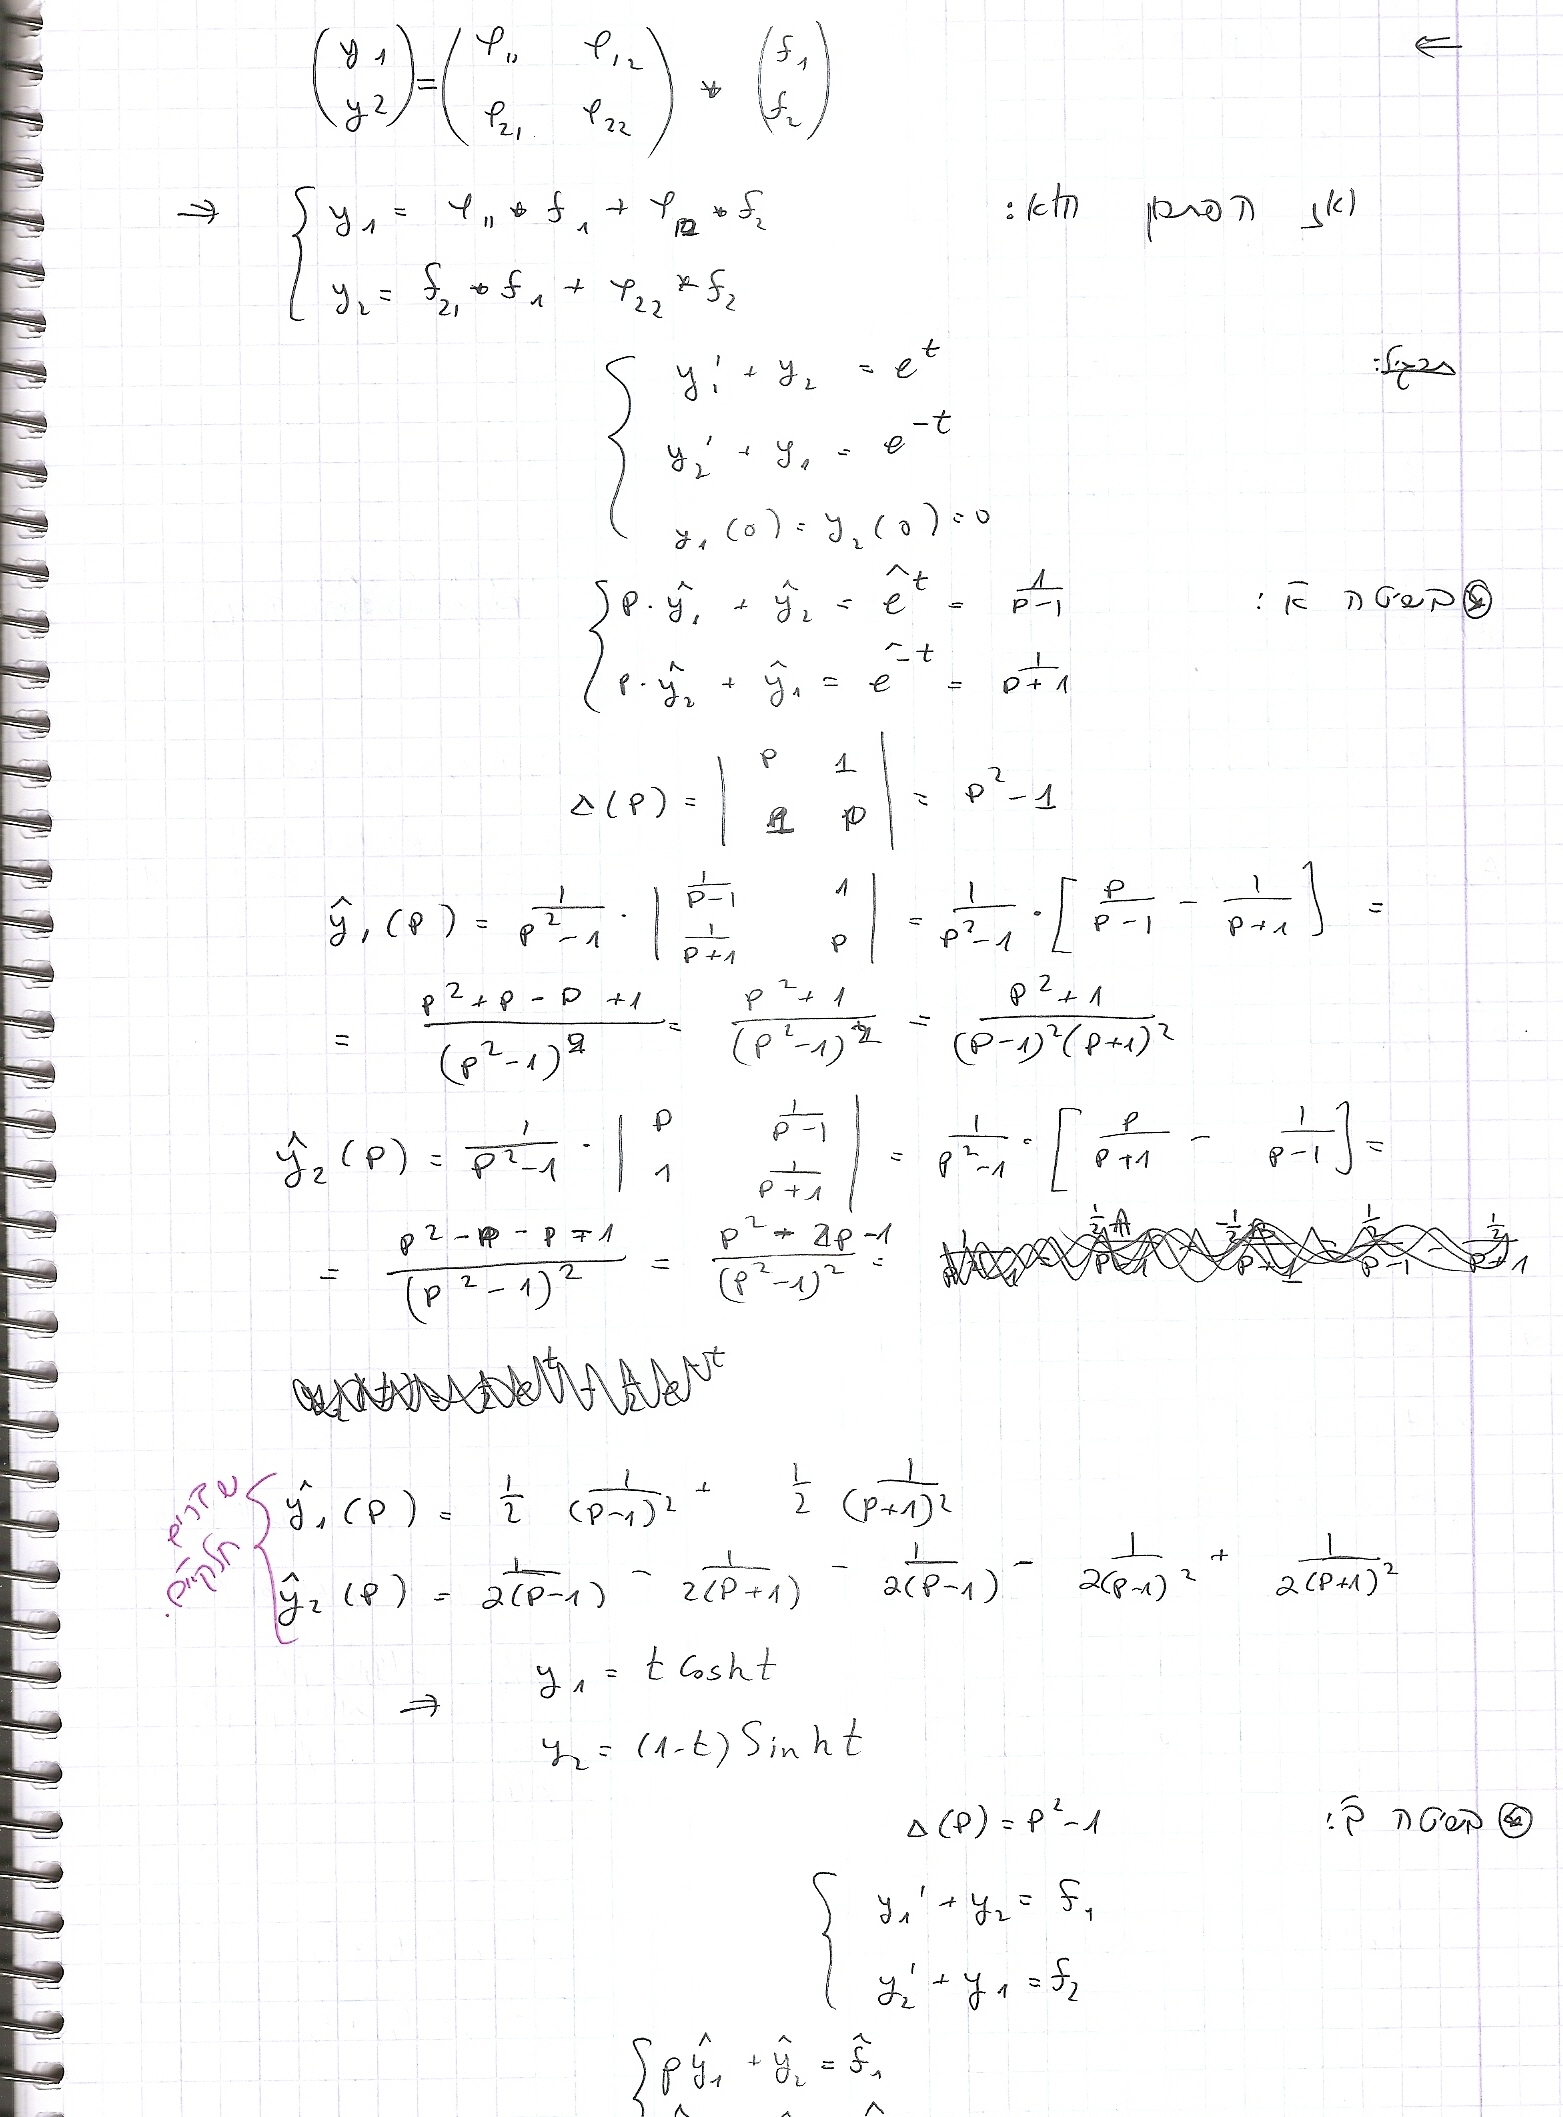 ←
(y1 y2) = (φ11 φ12 φ21 φ22) * (f1 f2)
ואז הפתרון הוא:
⇒ { y1 = φ11 * f1 + φ12 * f2
y2 = f21 * f1 + φ22 * f2
{ y1' + y2 = e^t
y2' + y1 = e^-t
y1(0) = y2(0) = 0
בשיטה א:
{ p·ŷ1 + ŷ2 = ê^t = 1/(p-1)
p·ŷ2 + ŷ1 = ê^-t = 1/(p+1)
Δ(p) = | p 1 1 p | = p^2-1
ŷ1(p) = 1/(p^2-1) · | 1/(p-1) 1 1/(p+1) p | = 1/(p^2-1) · [ p/(p-1) - 1/(p+1) ] =
= (p^2+p-p+1)/(p^2-1)^2 = (p^2+1)/(p^2-1)^2 = (p^2+1)/((p-1)^2(p+1)^2)
ŷ2(p) = 1/(p^2-1) · | p 1/(p-1) 1 1/(p+1) | = 1/(p^2-1) · [ p/(p+1) - 1/(p-1) ] =
= (p^2-p-p-1)/(p^2-1)^2 = (p^2-2p-1)/(p^2-1)^2 =
שברים חלקיים.
{ ŷ1(p) = 1/2 1/(p-1)^2 + 1/2 1/(p+1)^2
ŷ2(p) = 1/(2(p-1)) - 1/(2(p+1)) - 1/(2(p-1)) - 1/(2(p-1)^2) + 1/(2(p+1)^2)
⇒ y1 = t cosh t
y2 = (1-t) Sinh t
בשיטה ב:
Δ(p) = p^2-1
{ y1' + y2 = f1
y2' + y1 = f2
{ pŷ1 + ŷ2 = f̂1